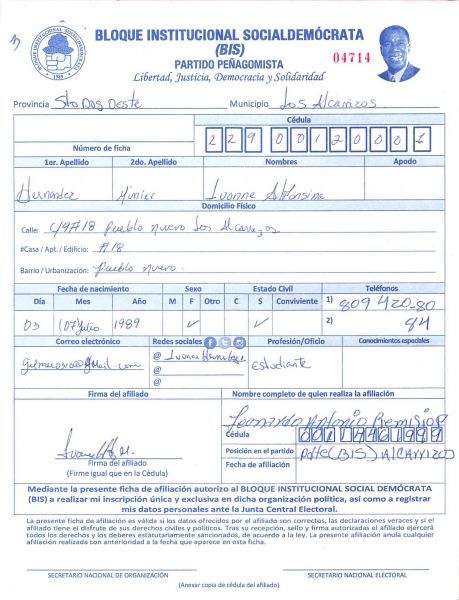 BLOQUE INSTITUCIONAL SOCIALDEMÓCRATA
(BIS)
PARTIDO PEÑAGOMISTA
Libertad, Justicia, Democracia y Solidaridad
04714
BLOQUE INSTITUCIONAL SOCIALDEMOCRATA
Provincia Sto Dgo Oeste Municipio Los Alcarrizos
Número de ficha
Cédula
1er. Apellido 2do. Apellido Nombres Apodo
Hernandez Ivonne Altonsina
Domicilio Físico
Calle: C/9#18 Pueblo nuevo Los Alcarrizos
#Casa / Apt. / Edificio: #18
Barrio / Urbanización: Pueblo nuevo.
Fecha de nacimiento Sexo Estado Civil Teléfonos
Día Mes Año M F Otro C S Conviviente 1) 809 420-80
03 (07 Julio 1989 ✓ ✓ 2) 84
Correo electrónico Redes sociales Profesión/Oficio Conocimientos especiales
@ Estudiante
@
@
Firma del afiliado Nombre completo de quien realiza la afiliación
Leonardo Antonio Remigio P
Cédula
Posición en el partido Pdte (BIS) Alcarrizos
Fecha de afiliación
Firma del afiliado
(Firme igual que en la Cédula)
Mediante la presente ficha de afiliación autorizo al BLOQUE INSTITUCIONAL SOCIAL DEMÓCRATA
(BIS) a realizar mi inscripción única y exclusiva en dicha organización política, así como a registrar
mis datos personales ante la Junta Central Electoral.
La presente ficha de afiliación es válida si los datos ofrecidos por el afiliado son correctos, las declaraciones veraces y si el
afiliado tiene el disfrute de sus derechos civiles y políticos. Tras su recepción, sello y firma autorizada el afiliado ejercerá
todos los derechos y los deberes estatutariamente sancionados, de acuerdo a la ley. La presente afiliación anula cualquier
afiliación realizada con anterioridad a la fecha que aparece en esta ficha.
SECRETARIO NACIONAL DE ORGANIZACIÓN SECRETARIO NACIONAL ELECTORAL
(Anexar copia de cédula del afiliado)